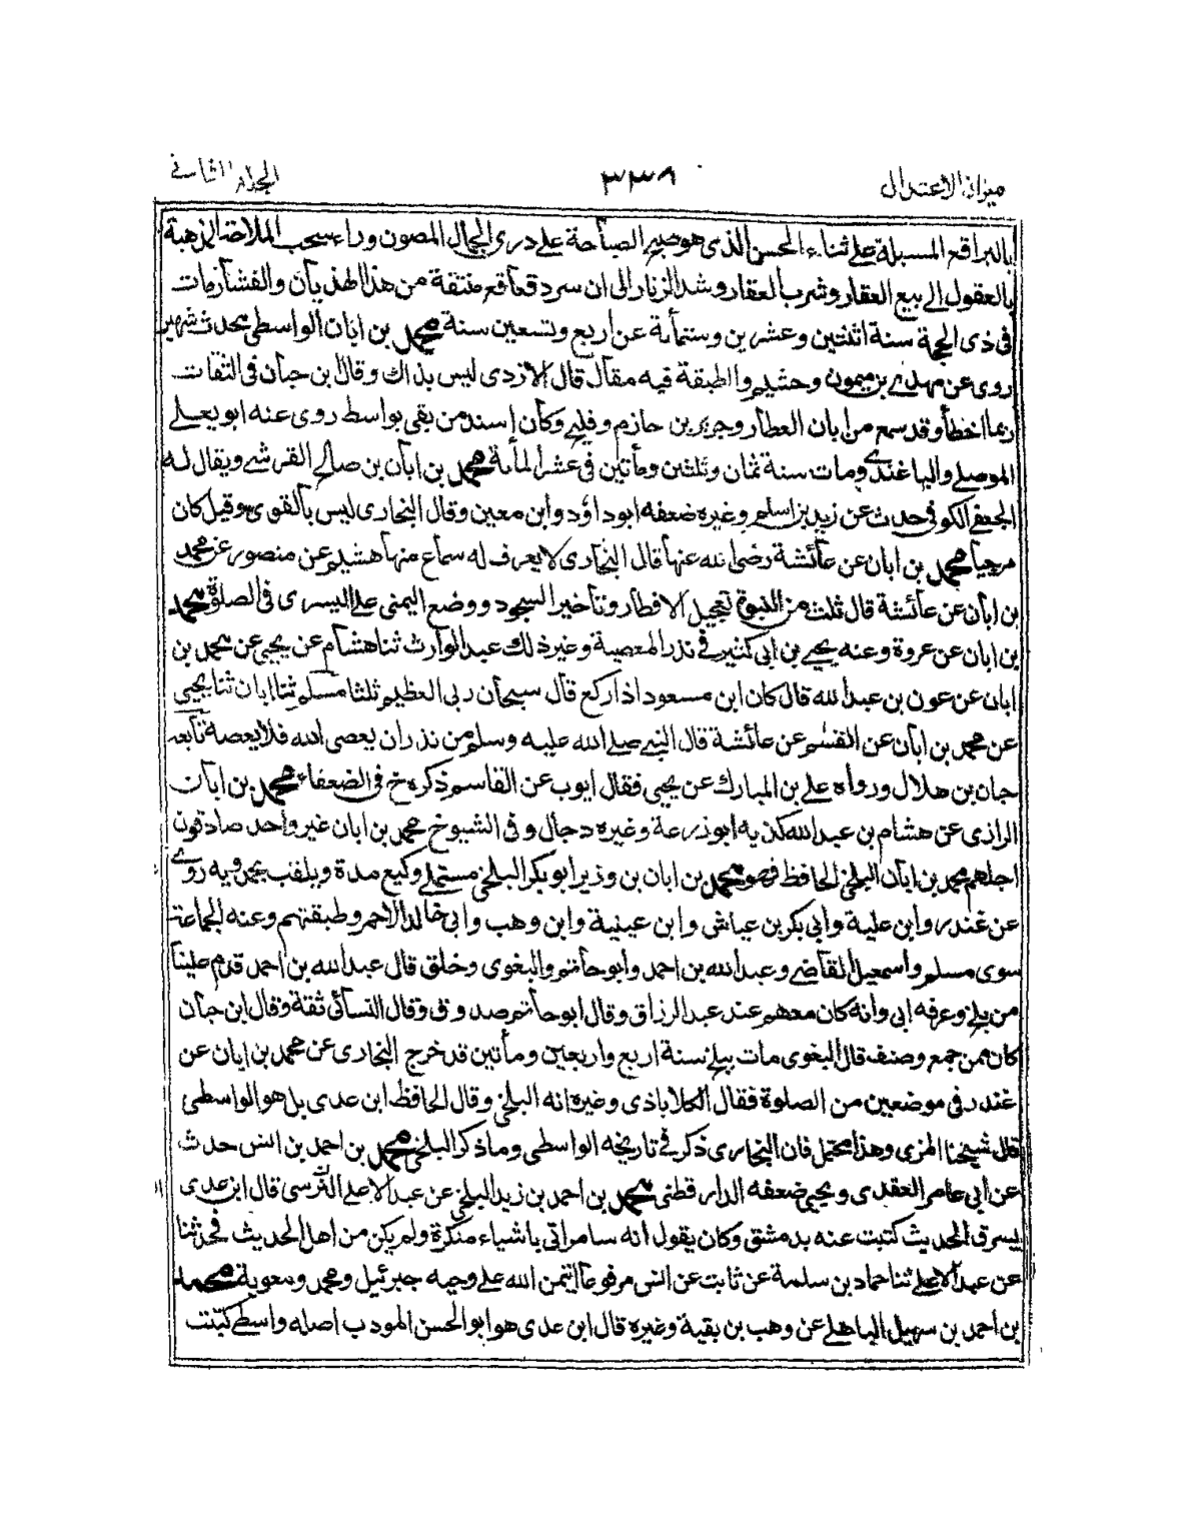 ميزان الاعتدال ٣٣٨ الجلد الثانى
بالبراقع المسبلة على ثناء الحسن الذى هو صبر الصباحة على درى الجمال المصون وراء سحب الملاحة الذهبة
بالعقول الى بيع العقار وشرب العقار وشد الزنار الى ان سرد قعاقع منتقة من هذا الهذيان والفشار مات
فى ذى الحجة سنة اثنتين وعشرين وستمأية عن اربع وتسعين سنة محمد بن ابان الواسطى محدث شهير
روى عن مهدى بن ميمون وحشيم والطبقة فيه مقال قال الازدى ليس بذاك وقال ابن حبان فى الثقات
ربما اخطأ وقد سمع من ابان العطار وجرير بن حازم وفليح وكان اسند من بقى بواسط روى عنه ابو يعلى
الموصلى والباغندى ومات سنة ثمان وثلثين ومأتين فى عشر المأية محمد بن ابان بن صالح القرشى ويقال له
الجعفى الكوفى حدث عن زيد بن اسلم وغيره ضعفه ابو داؤد وابن معين وقال البخارى ليس بالقوى وقيل كان
مرجيا محمد بن ابان عن عائشة رضى الله عنها قال البخارى لا يعرف له سماع منها هشيم عن منصور عن محمد
بن ابان عن عائشة قال ثلث من النبوة تعجيل الافطار وتأخير السجود ووضع اليمنى على اليسرى فى الصلوة محمد
بن ابان عن عروة وعنه يحيى بن ابى كثير فى نذر المعصية وغير ذلك عبد الوارث ثنا هشام عن يحيى عن محمد بن
ابان عن عون بن عبد الله قال كان ابن مسعود اذا ركع قال سبحان ربى العظيم ثلثا مسلم ثنا ابان ثنا يحيى
عن محمد بن ابان عن القسم عن عائشة قال النبى صلى الله عليه وسلم من نذر ان يعصى الله فلا يعصه تابعه
حبان بن هلال ورواه على بن المبارك عن يحيى فقال ايوب عن القاسم ذكره خ فى الضعفاء محمد بن ابان
الرازى عن هشام بن عبد الله كذبه ابو زرعة وغيره دجال وفى الشيوخ محمد بن ابان غير واحد صادقون
اجلهم محمد بن ابان البلخى الحافظ فهو محمد بن ابان بن وزير ابو بكر البلخى مستملى وكيع مدة ويلقب بحمدويه روى
عن غندر وابن علية وابى بكر بن عياش وابن عيينة وابن وهب وابى خالد الاحمر وطبقتهم وعنه الجماعة
سوى مسلم واسمعيل القاضى وعبد الله بن احمد وابو حاتم والبغوى وخلق قال عبد الله بن احمد قدم علينا
من بلخ وعرفه ابى وانه كان معهم عند عبد الرزاق وقال ابو حاتم صدوق وقال النسائى ثقة وقال ابن حبان
كان ممن جمع وصنف قال البغوى مات ببلخ سنة اربع واربعين ومأتين قد خرج البخارى عن محمد بن ابان عن
غندر فى موضعين من الصلوة فقال الكلاباذى وغيره انه البلخى وقال الحافظ ابن عدى بل هو الواسطى
قال شيخنا المزى وهذا محتمل فان البخارى ذكر فى تاريخه الواسطى وما ذكر البلخى محمد بن احمد بن انس حدث
عن ابى عامر العقدى ويحيى ضعفه الدار قطنى محمد بن احمد بن زيد البلخى عن عبد الاعلى النرسى قال ابن عدى
يسرق الحديث كتبت عنه بدمشق وكان يقول انه سامرائى باشياء منكرة ولم يكن من اهل الحديث فحدثنا
عن عبد الاعلى ثنا حماد بن سلمة عن ثابت عن انس مرفوعا ائتمن الله على وحيه جبرئيل ومحمد ومعوية محمد
بن احمد بن سهيل الباهلى عن وهب بن بقية وغيره قال ابن عدى هو ابو الحسن المودب اصله واسطى كتبت